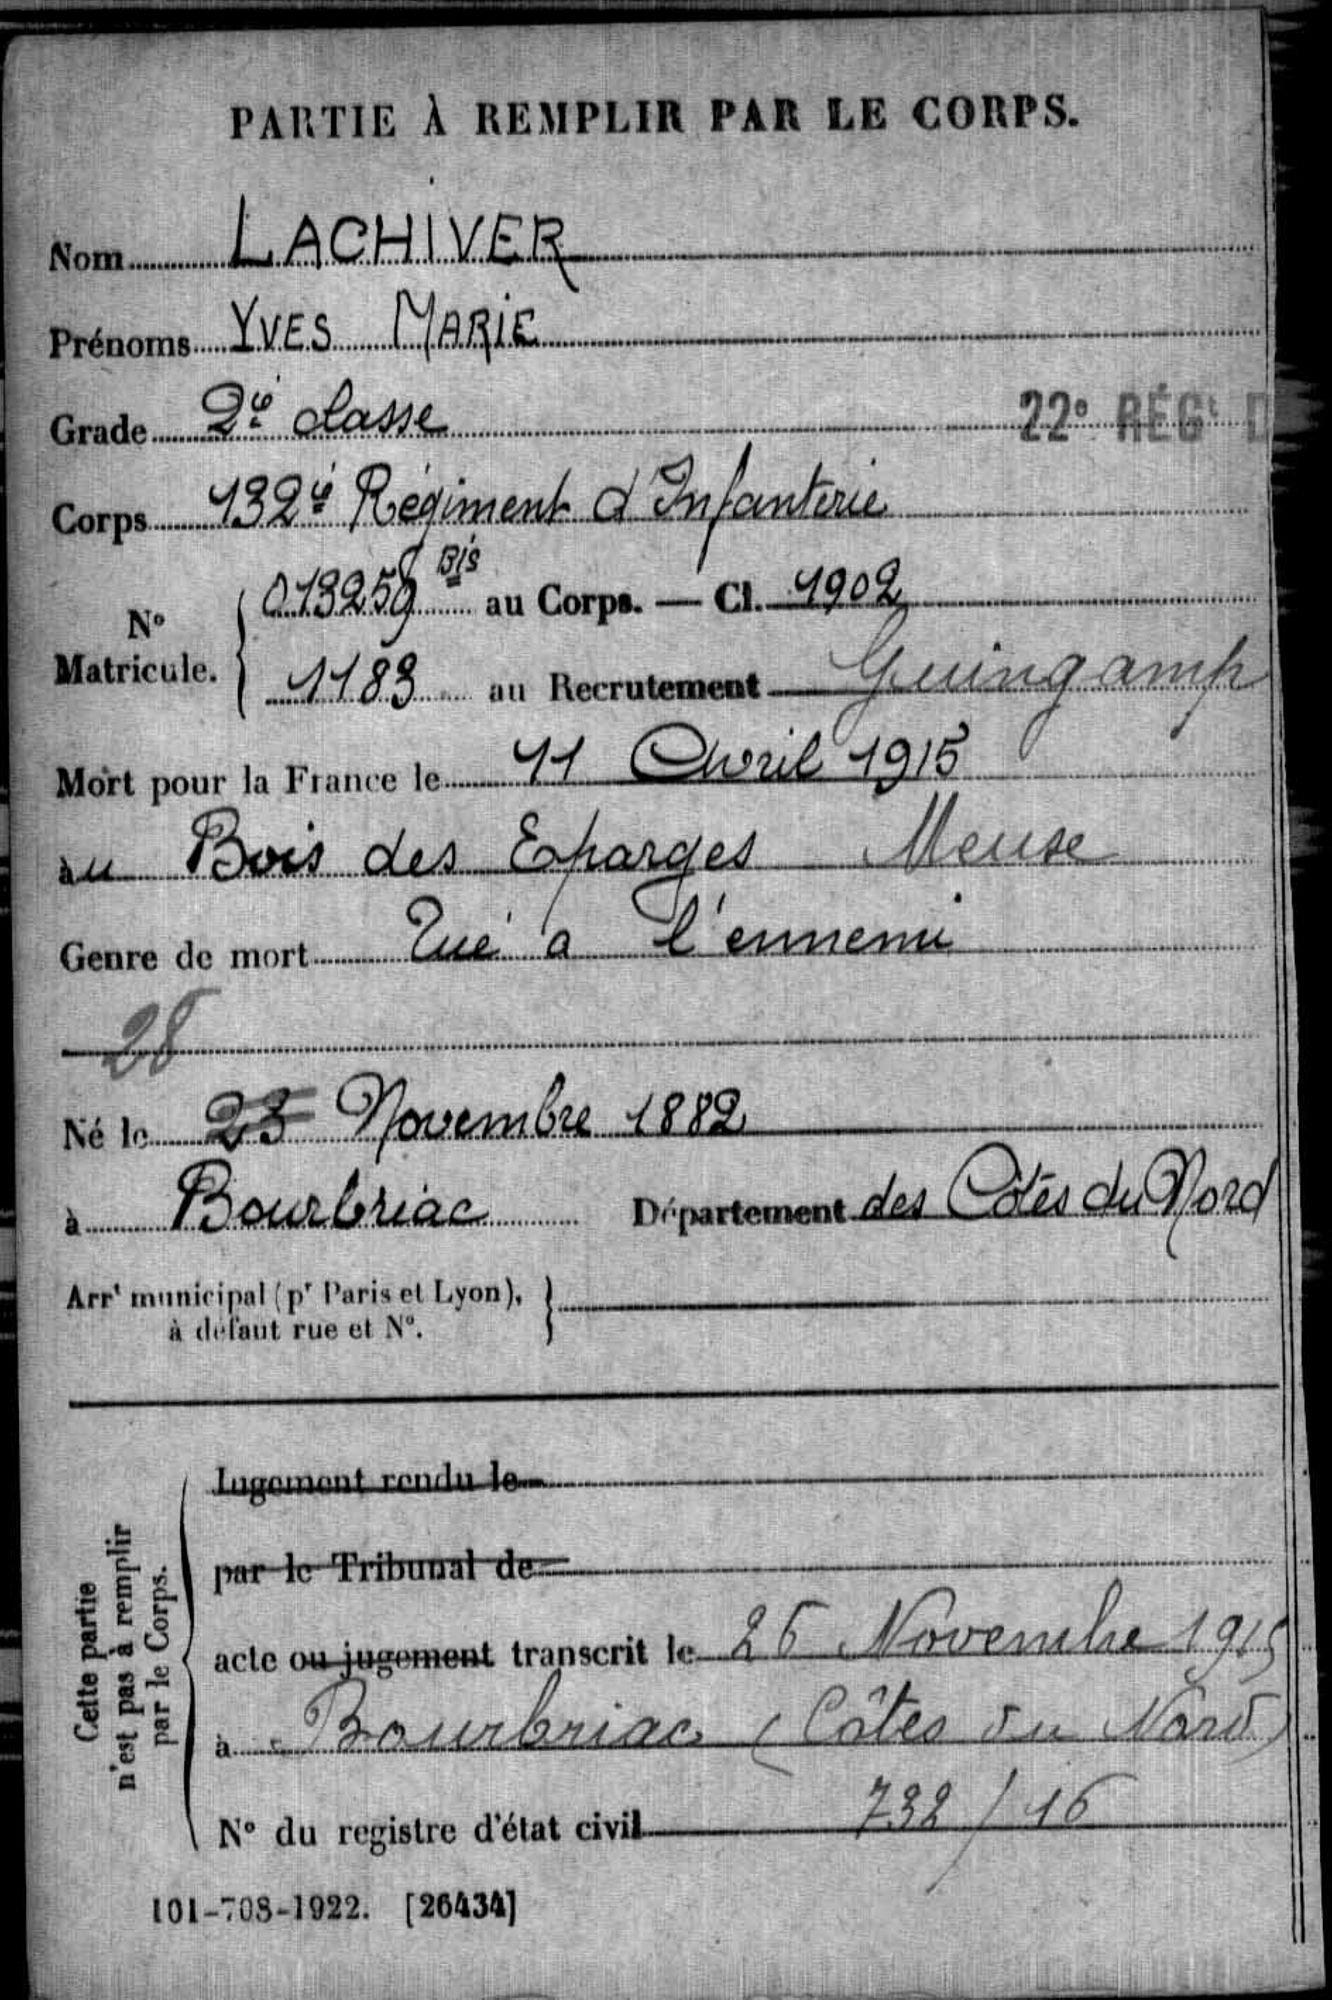 PARTIE À REMPLIR PAR LE CORPS.
Nom LACHIVER
Prénoms YVES MARIE
Grade 2e classe 22e RÉGt D
Corps 132e Régiment d'Infanterie
No Matricule. 013259 Bis au Corps. — Cl. 1902
1183 au Recrutement Guingamp
Mort pour la France le 11 Avril 1915
au Bois des Eparges Meuse
Genre de mort Tué a l'ennemi
28
Né le 23 Novembre 1882
à Bourbriac Département des Côtes du Nord
Arrt municipal (pr Paris et Lyon),
à défaut rue et No.
Cette partie
n'est pas à remplir
par le Corps.
Jugement rendu le
par le Tribunal de
acte ou jugement transcrit le 26 Novembre 1915
à Bourbriac (Côtes du Nord)
No du registre d'état civil 732/16
101-708-1922. [26434]